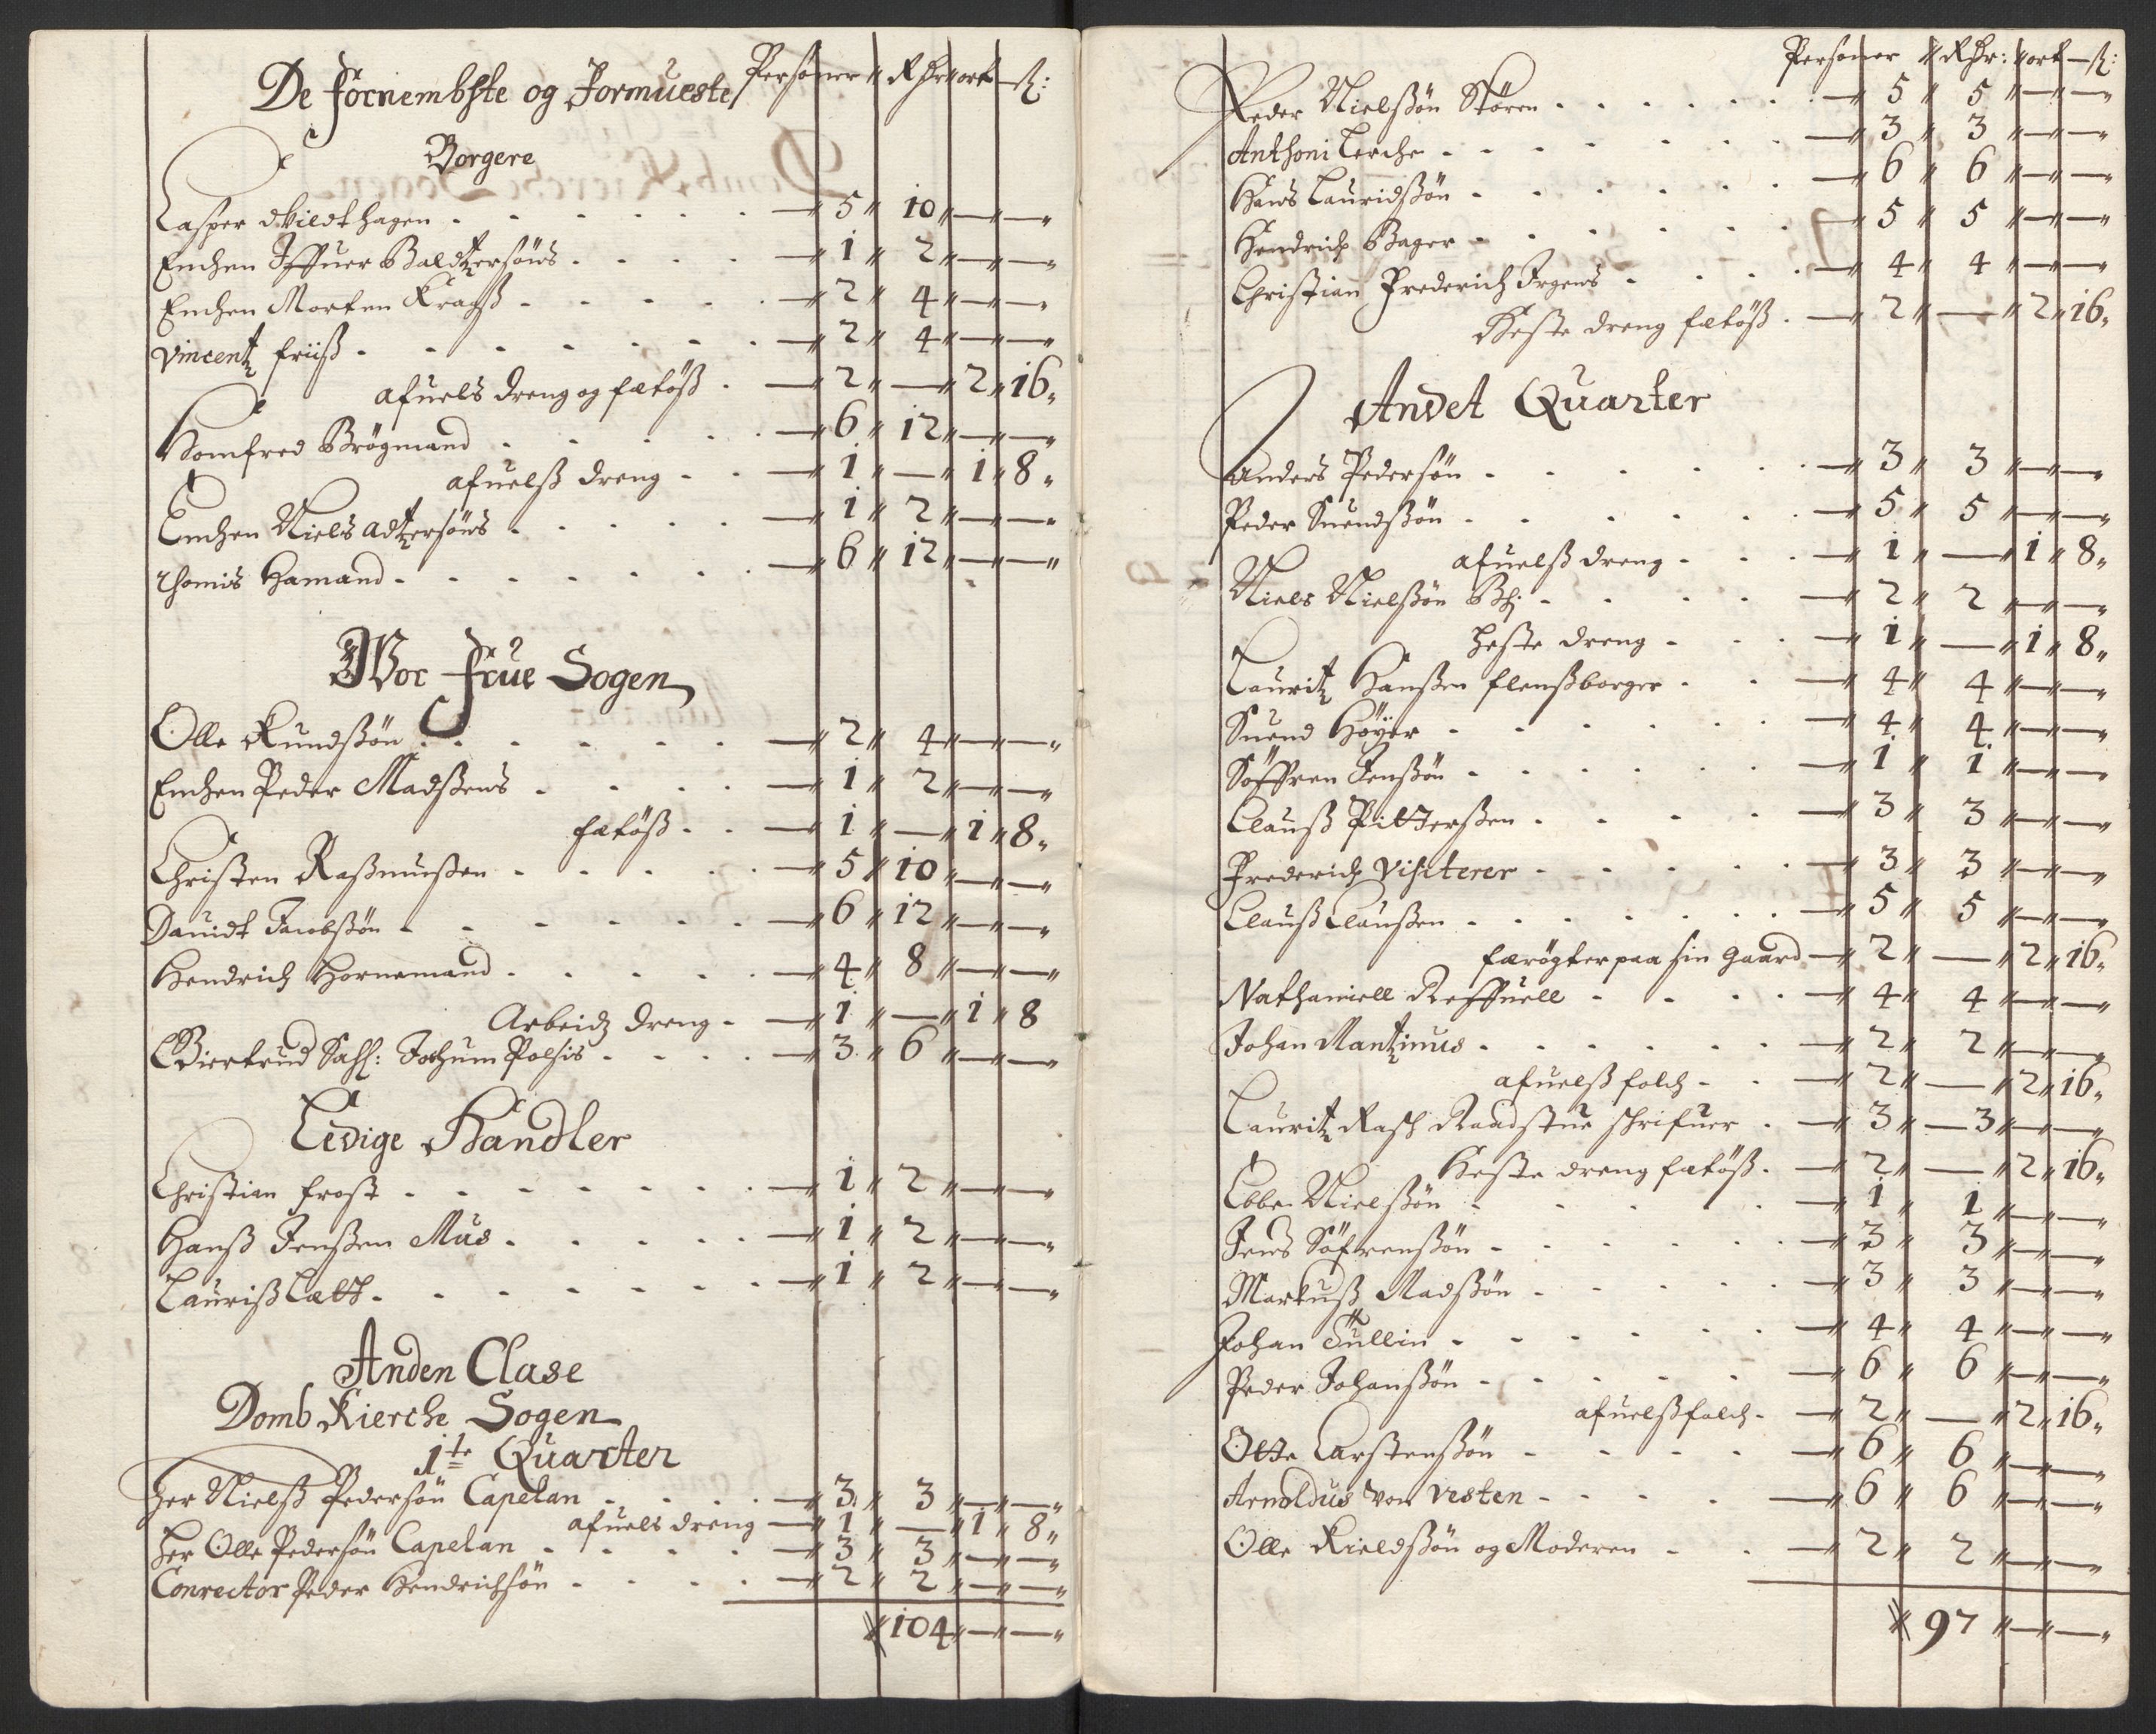 De fornembste og Formueste Personer Rdr ort ß:
Borgere
Casper dWildthagen 5 10 — —
Enchen Iffuer Baldtzersøns 1 2 — —
Enchen Morten Kragß 2 4 — —
Vincentz friiß 2 4 — —
afuels dreng og fætøß 2 — 2 16
Homfred Brøgmand 6 12 — —
afuelß dreng 1 — 1 8
Enchen Niels adtzersøns 1 2 — —
Thomis Hamand 6 12 — —
Wor frue Sogen
Olle Kundßøn 2 4 — —
Enchen Peder Madßens 1 2 — —
fætøß 1 — 1 8
Christen Raßmußen 5 10 — —
Dauidt Jacobßøn 6 12 — —
Hendrich Hornemand 4 8 — —
Arbeidz dreng 1 — 1 8
Giertrud Sahl: Jochum Polsis 3 6 — —
Ledige Handler
Christian frost 1 2 — —
Hanß Jenßen Mus 1 2 — —
Laurißlætt 1 2 — —
Anden Clase
Domb Kierche Sogen
1te Quarter
Her Nielß Pedersøn Capelan 3 3 — —
afuels dreng 1 — 1 8
Her Olle Pedersøn Capelan 3 3 — —
Conrector Peder Hendrichsøn 2 2 — —
104 — —
Personer Rdr: ort ß:
Peder Nielßøn Støren 5 5 — —
Anthoni Lerche 3 3 — —
Hans Lauridßøn 6 6 — —
Hendrich Bager 5 5 — —
Christian Frederich Irgens 4 4 — —
Heste dreng fætøß 2 — 2 16
Andet Quarter
Anders Pedersøn 3 3 — —
Peder Suendßøn 5 5 — —
afuelß dreng 1 — 1 8
Niels Nielßøn Bh: 2 2 — —
heste dreng 1 — 1 8
Lauritz Hanßen flenßborger 4 4 — —
Suend Høyer 4 4 — —
Søffren Jenßøn 1 1 — —
Clauß Pitterßen 3 3 — —
Frederich Visiterer 3 3 — —
Clauß Claußen 5 5 — —
færøgter paa sin gaard 2 — 2 16
Nathaniell Reffuell 4 4 — —
Johan Mantzinus 2 2 — —
afuelß folch 2 — 2 16
Lauritz Rasch Raadstue schrifuer 3 3 — —
Heste dreng fætøß 2 — 2 16
Ebbe Nielßøn 1 1 — —
Jens Søfrenßøn 3 3 — —
Markuß Madßøn 3 3 — —
Johan Tullin 4 4 — —
Peder Johanßøn 6 6 — —
afuelßfolch 2 — 2 16
Otte Carstenßøn 6 6 — —
Arnoldus von Vesten 6 6 — —
Olle Kieldßøn og Moderen 2 2 — —
97 — —